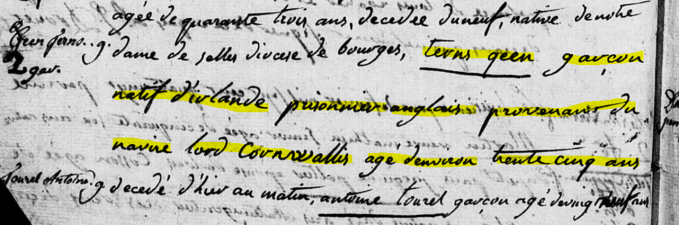 agée de quarante trois ans, decedée du neuf, native de notre
g. dame de selles diocese de bourges, terns geen garçon
2 gar.
natif d'irlande prisonnier anglais provenant du
navire lord Cornwallis agé denviron trente cinq ans
Tourel Antoine. g. decedé d'hier au matin, antoine tourel garçon agé de vingt neuf ans